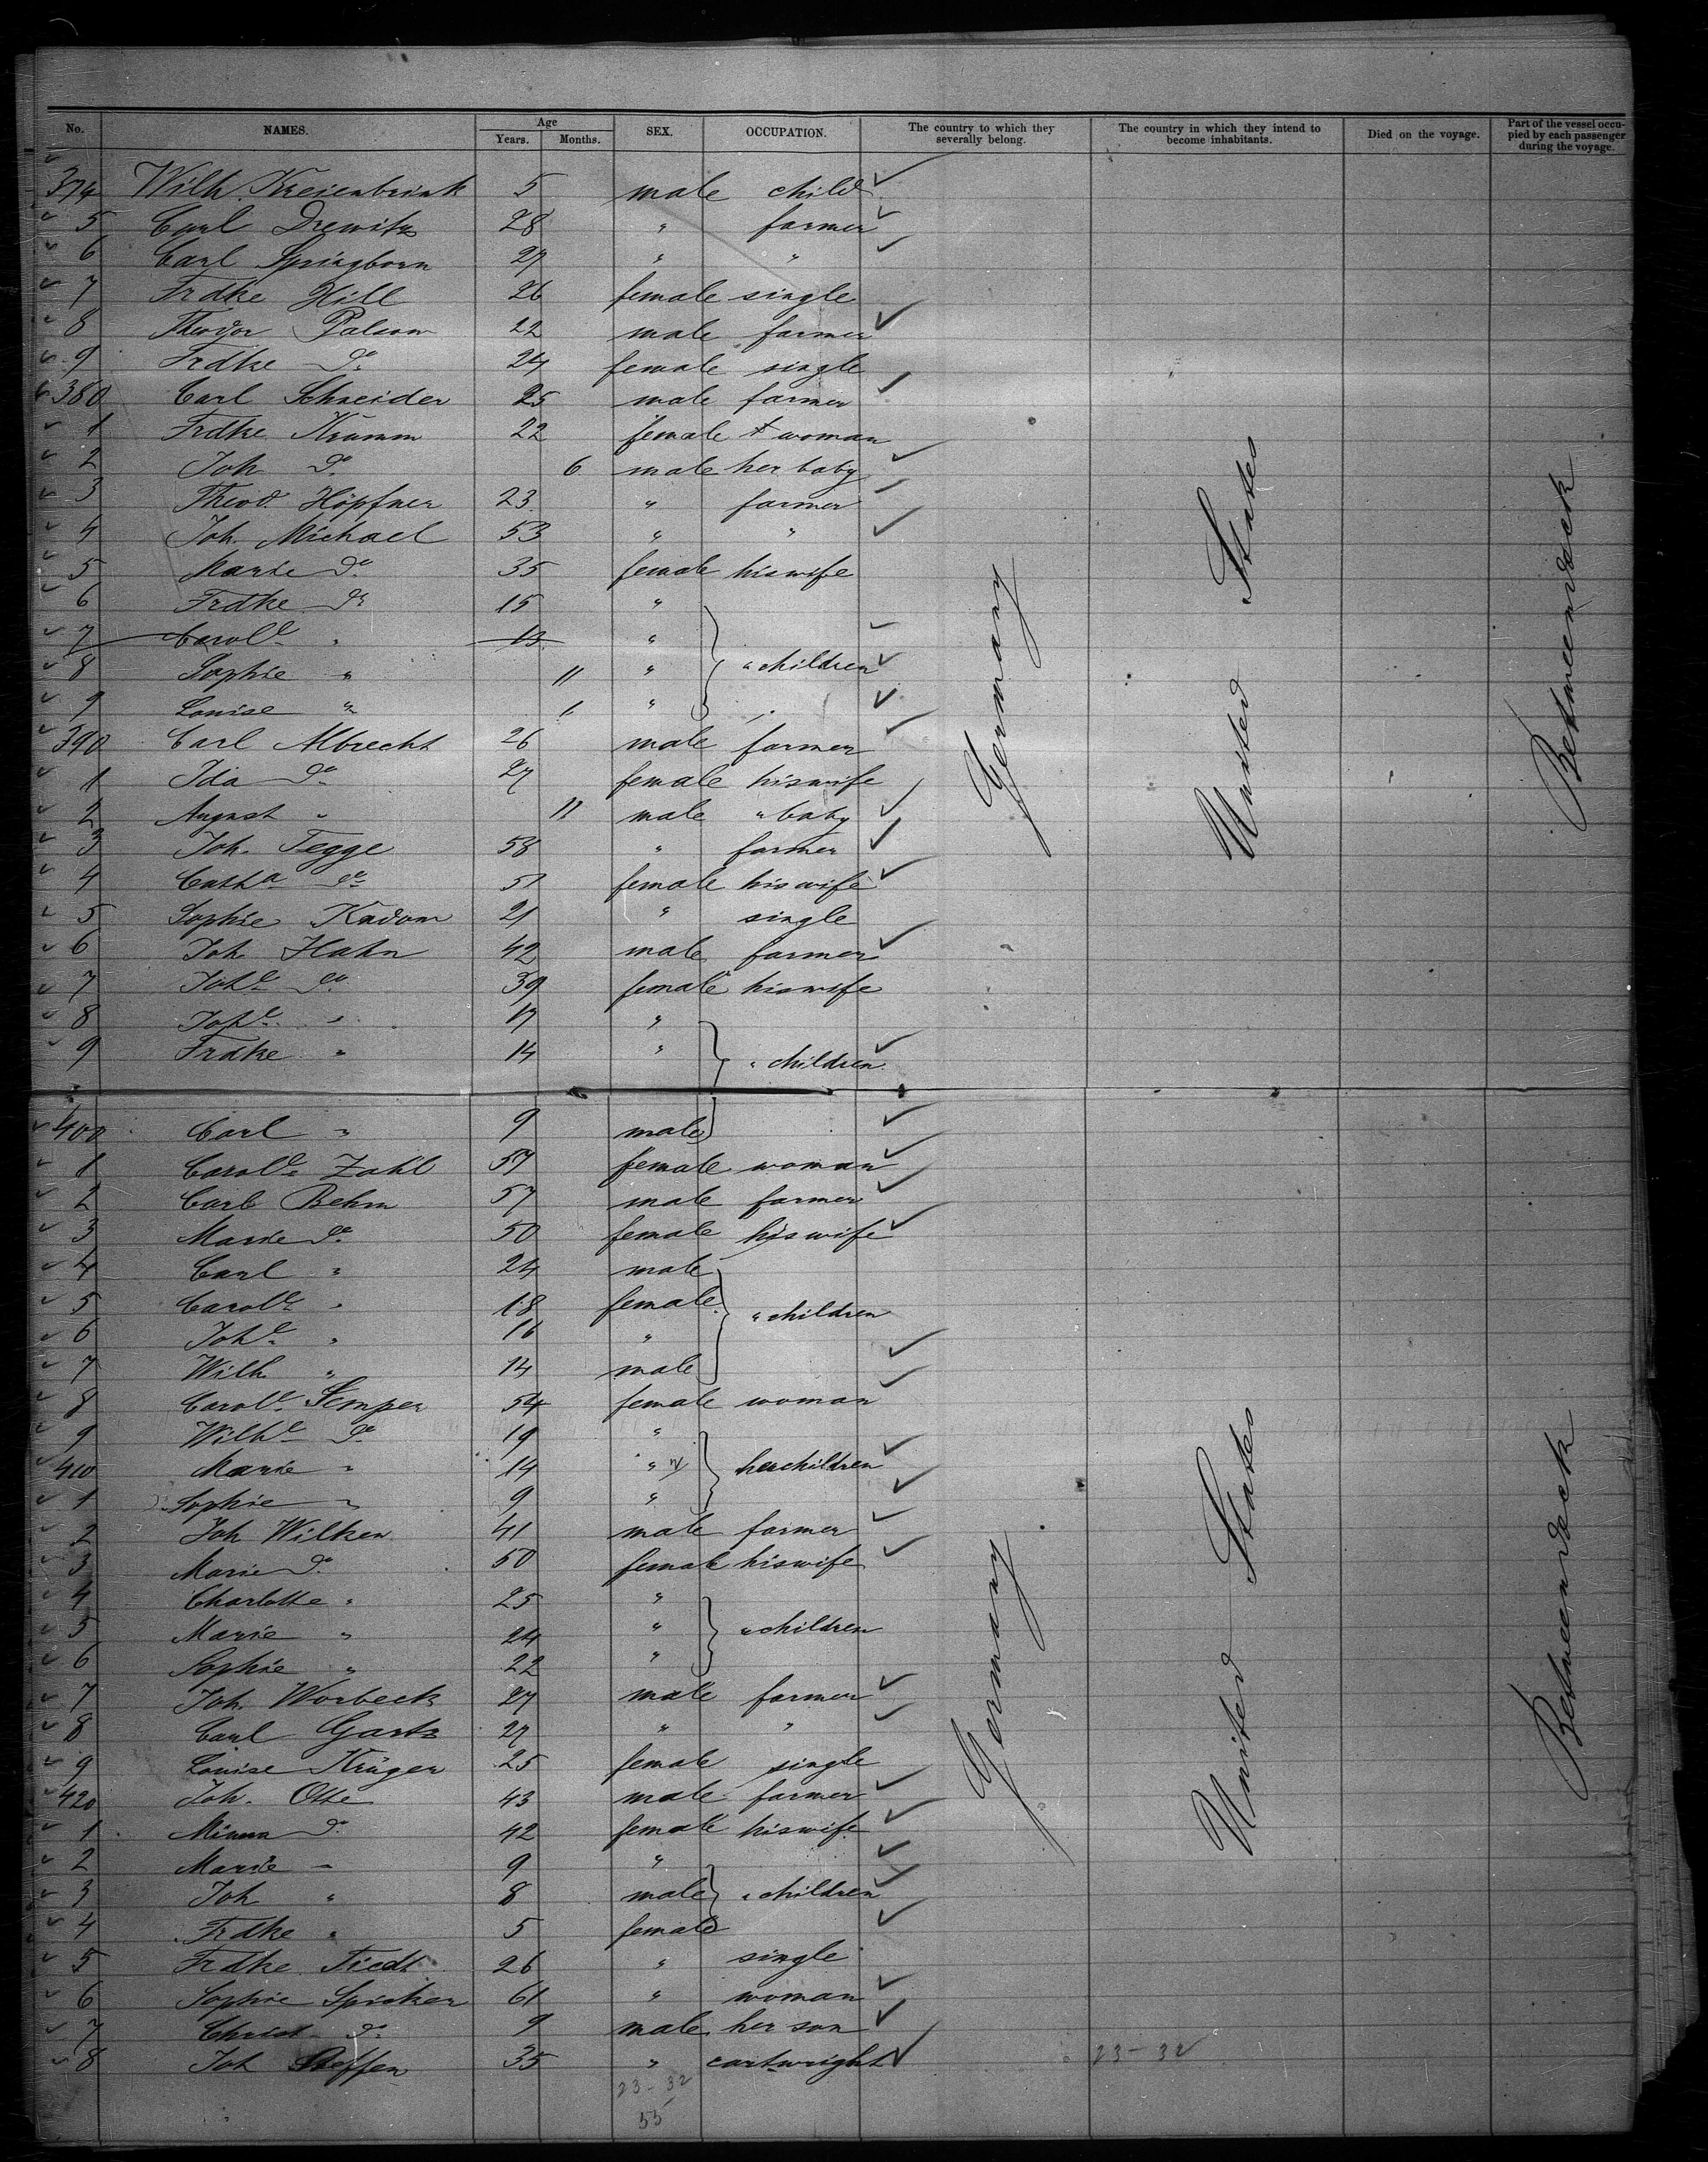 No. NAMES. Age Years. Months. SEX. OCCUPATION. The country to which they severally belong. The country in which they intend to become inhabitants. Died on the voyage. Part of the vessel occupied by each passenger during the voyage.
374 Wilh. Kreienbrink 5 male child
5 Carl Drewitz 28 " farmer
6 Carl Springborn 27 " "
7 Frdke Hill 26 female single
8 Theodor Palsom 22 male farmer
9 Frdke do 24 female single
380 Carl Schneider 25 male farmer
1 Frdke Kramm 22 female woman
2 Joh do 6 male her baby
3 Theod. Höpfner 23 " farmer
4 Joh. Michael 53 " "
5 Marie do 35 female his wife
6 Frdke do 15 "
7 Carole " 13 "
8 Sophie " 11 " " children
9 Louise " "
390 Carl Albrecht 26 male farmer
1 Ida do 27 female his wife
2 August " 11 male " baby
3 Joh. Tegge 58 " farmer
4 Catha do 51 female his wife
5 Sophie Kadom 21 " single
6 Joh Hahn 42 male farmer
7 Johe do 39 female his wife
8 Johe " 17 "
9 Frdke " 14 " " children
400 Carl " 9 male
1 Carole Zahl 57 female woman
2 Carl Behm 57 male farmer
3 Marie do 50 female his wife
4 Carl " 24 male
5 Carole " 18 female " children
6 Johe " 16 "
7 Wilh " 14 male
8 Carole Semper 54 female woman
9 Wilhe do 19 "
410 Marie " 14 " her children
1 Sophie " 9 "
2 Joh Wilken 41 male farmer
3 Marie do 50 female his wife
4 Charlotte " 25 "
5 Marie " 24 " " children
6 Sophie " 22 "
7 Joh. Worbeck 27 male farmer
8 Carl Gartz 27 " "
9 Louise Krüger 25 female single
420 Joh. Otte 43 male farmer
1 Minna do 42 female his wife
2 Marie " 9 "
3 Joh " 8 male " children
4 Frdke " 5 female
5 Frdke Tiedt 26 " single
6 Sophie Spicker 61 " woman
7 Christ do 9 male her son
8 Joh Steffen 35 " cartwright
23-32 23-32
55
Germany
United States
Betweendeck
Germany
United States
Betweendeck